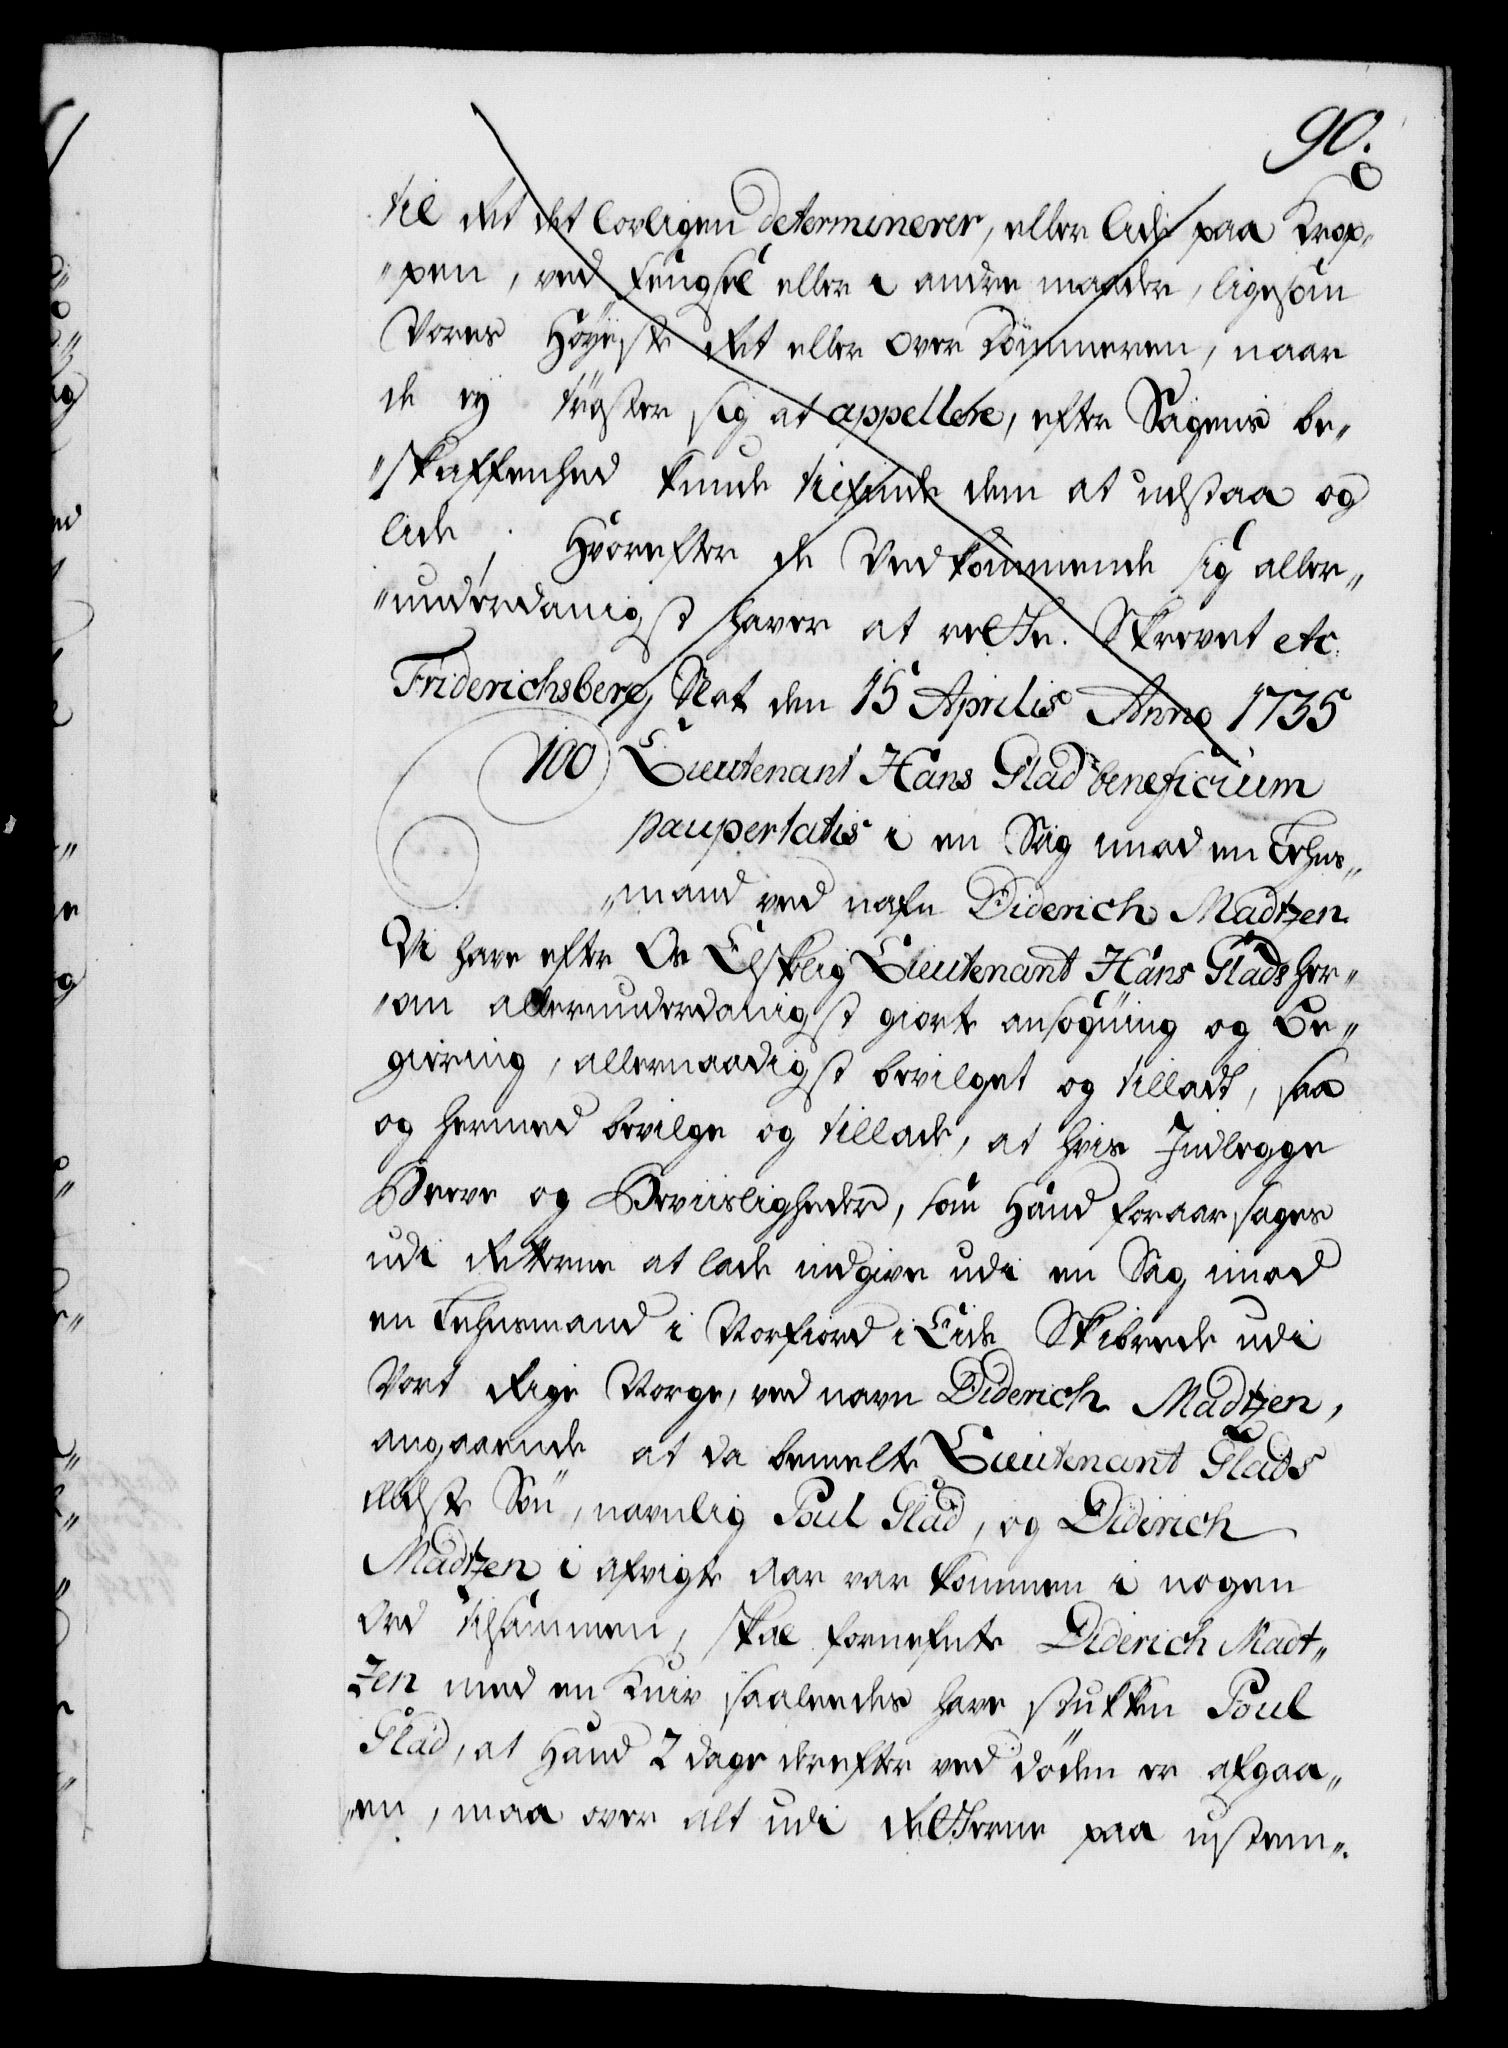 90.
til det det lovligen determinerer, eller lide paa Krop„
„pen, ved Fengsel eller i andre maader, ligesom
Vores Høyeste Ret eller Over Dommeren, naar
de ey trøster sig at appellere, efter Sagens be„
„skaffenhed kunde tilfinde dem at udstaa og
lide. Hvorefter de Vedkommende sig aller„
„underdanigst haver at rette. Skrevet etc.
Friderichsberg Slot den 15 Aprilis Anno 1735
100 Lieutenant Hans Glad beneficium
paupertatis i en Sag imod en Lehns„
„mand ved nafn Diderich Madtzen
Vi have efter Os Elskelig Lieutenant Hans Glads her„
„om allerunderdanigst giorte ansøgning og Be„
giering, allernaadigst bevilget og tilladt, saa
og hermed bevilge og tillade, at hvis Indlegge
Breve og Beviisligheder, som Hand foraarsages
udi Retterne at lade indgive udi en Sag imod
en Lehnsmand i Norfiord i Eide Skibrede udi
Vort Rige Norge, ved navn Diderich Madtzen,
angaaende at da bemelte Lieutenant Glads
ældste Søn, navnlig Poul Glad, og Diderich
Madtzen i afvigte Aar var kommen i nogen
Ord tilsammen, skal fornefnte Diderich Madt„
zen med en Kniv saaledes have stukken Poul
Glad, at Hand 2 dage derefter ved døden er afgaa„
„en, maa over alt udi Retterne paa ustem„